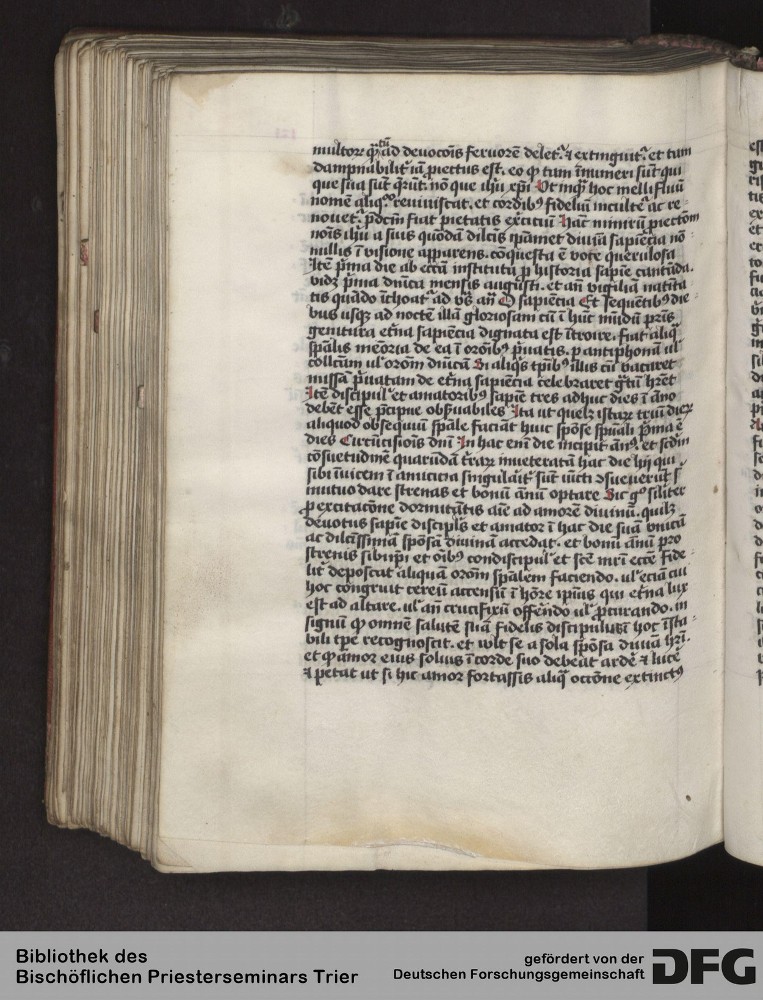 multoꝝ q̄ꝫtū ad deuocōis feruorē delet᷑ ⁊ extinguit᷑ et tam
dampnabilit᷑ iā ꝓiectus est. eo ꝙ tam īnumeri sūt qui
que sua sūt q̄rūt. nō que ihū xp̄i Ut inq̄ hoc mellifluū
nomē aliq̄ reuiuiscat. et cordibꝰ fideliū inculcē ac re
nouet᷑. p̄dcm̄ fiat pietatis exercitiū Hāc nimirū
noīs ihū a suis quōdā dilcīs ip̄amet diuīa sapiēcia nō
nullis ī visione apparens. cōquesta ē voce querulosa
Itē p̄ma die ab eccīa institutū ꝑ historia sapīe cantāda.
videꝫ p̄ma dnīca mensis augusti. et an̄ vigiliā natīta
tis quādo īchoat᷑ ad vs̄ an̄ O sapiēcia Et sequentibꝰ die
bus usqꝫ ad noctē illā gloriosam cū ī hūc mūdū p̄ris
genitura et̄na sapiēcia dignata est ītroire. fiat aliq̄
sp̄alis memoria de ea ī orōibꝰ p̄uatis. ꝑ antiphonā ul̓
collcām ul̓ orōm dnīcā Si aliqs̄ tp̄ibꝰ illis cū vacaret
missā p̄uatam de et̄na sapiēcia celebraret gtū hr̄et
Itē discipul̓ et amatoribꝰ sapīe tres adhuc dies ī āno
debēt esse p̄cipue obs̄uabiles Ita ut quelꝫ istaꝝ triū dieꝝ
aliquod obsequiū sp̄ale faciat huic spōse sp̄uali P̄ma ē
dies Circūcisiōis dnī In hac enī die incipit ānꝰ. et scdm̄
cōsuetudinē quarūdā tr̄aꝝ inueteratā hac die hij qui
sibi īuicem ī amicicia singulait᷑ sūt iūcti ↄsueuerūt s̄
mutuo dare strenas et bonū ānū optare Sic gͦ sīlit᷑
ꝓ excitacōne dormitātis aīe ad amorē diuinū. quilꝫ
deuotus sapīe discipls̄ et amator ī hac die suā vnicā
ac dilcīssimā spōsā diuinā accedat. et bonū ānū pro
strenis sibiip̄i et oībꝰ condiscipul̓ et scē mr̄i eccīe fide
lit᷑ deposcat aliquā orōm sp̄alem faciendo. ul̓ eciā cui
hoc congruit cereū accensū ī hōre ip̄ius qui et̄na lux
est ad altare. ul̓ an̄ crucifixū offerēdo ul̓ ꝓcurando. in
signū ꝙ omnē salutē suā fidelis discipulus hoc īsta
bili tp̄e recognoscit. et wlt se a sola spōsa diuīa hr̄i.
et ꝙ amor eius solius ī corde suo debeat ardē ⁊ lucē
⁊ petat ut si hic amor fortassis aliq̄ occōne extinctꝰ
Bibliothek des
Bischöflichen Priesterseminars Trier
gefördert von der
Deutschen Forschungsgemeinschaft
DFG